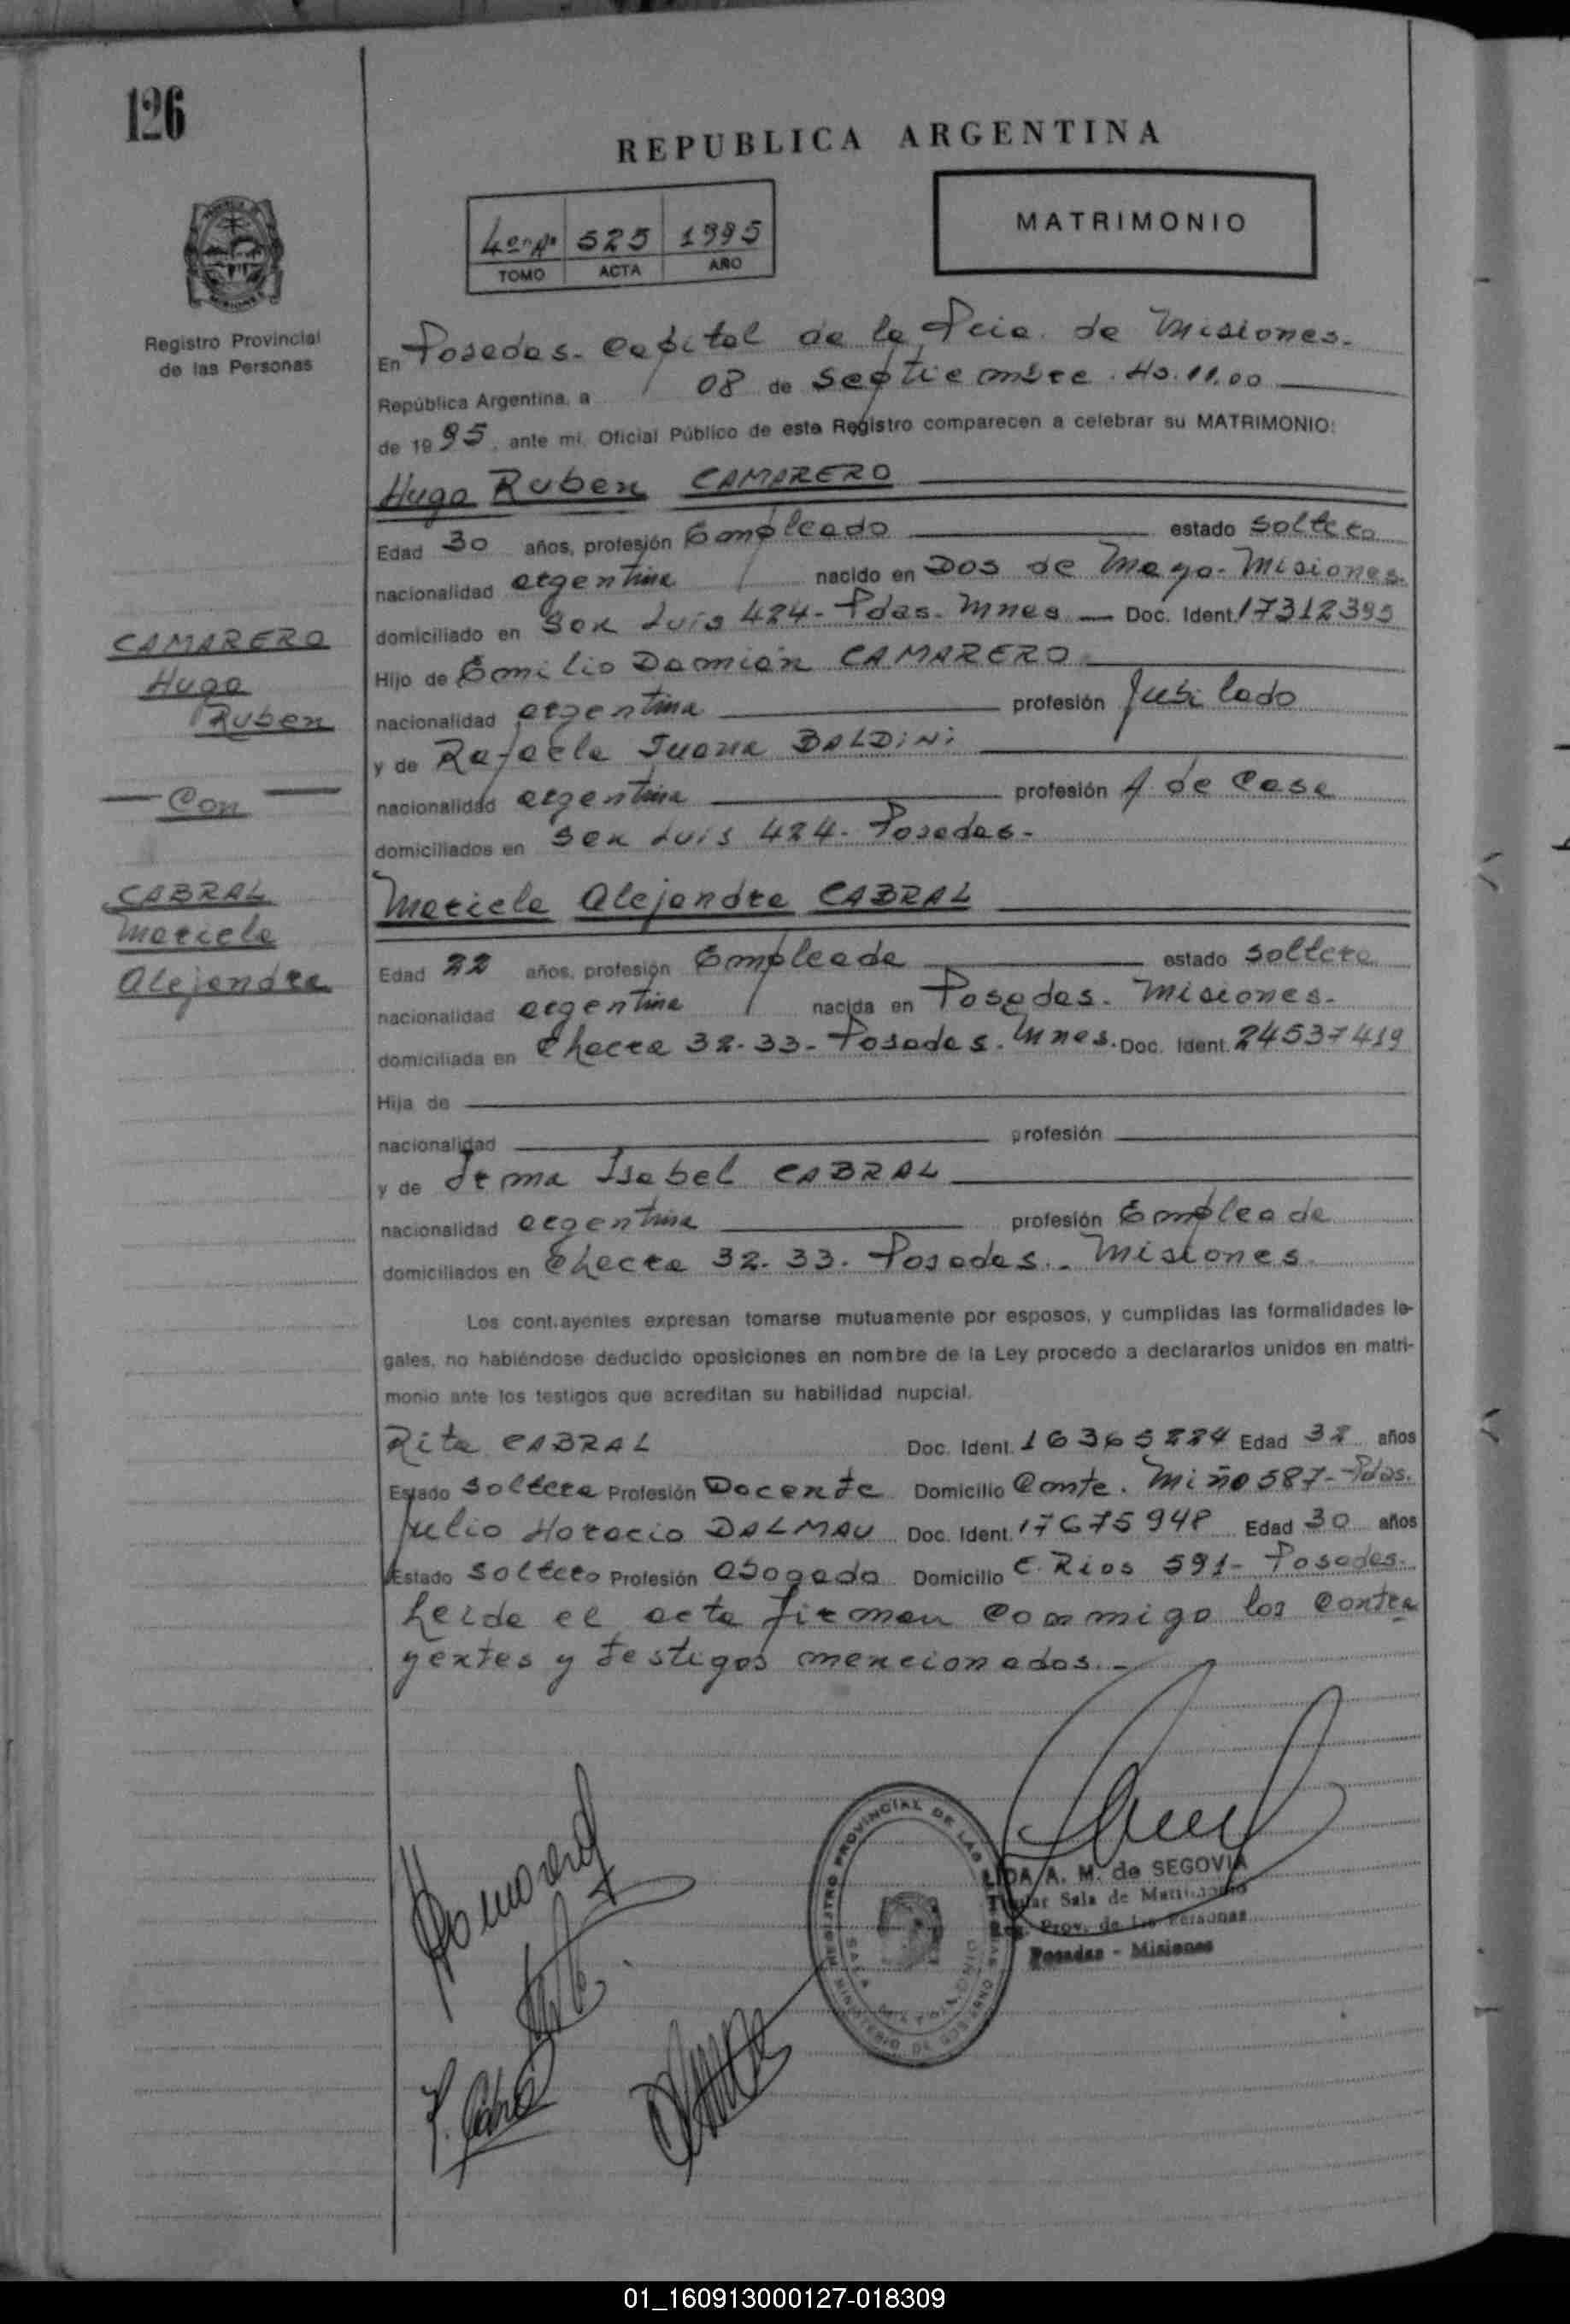 126
REPUBLICA ARGENTINA
MATRIMONIO
525 1995
TOMO ACTA AÑO
Registro Provincial
de las Personas
En Posadas. Capital de la Pcia. de Misiones.
República Argentina, a 08 de Septiembre. Hs. 11.00
de 1995, ante mi, Oficial Público de este Registro comparecen a celebrar su MATRIMONIO:
Hugo Ruben CAMARERO
Edad 30 años, profesión Empleado estado soltero
nacionalidad argentina nacido en Dos de Mayo. Misiones.
domiciliado en San Luis 424- Pdas. Mnes Doc. Ident. 17312395
Hijo de Emilio Damián CAMARERO
nacionalidad argentina profesión Jubilado
y de Rafaela Juana BALDINI
nacionalidad argentina profesión A. de Casa
domiciliados en San Luis 424- Posadas-
CAMARERO
Hugo
Ruben
Con
CABRAL
Mariela
Alejandra
Mariela Alejandra CABRAL
Edad 22 años, profesión Empleada estado soltera
nacionalidad argentina nacida en Posadas. Misiones.
domiciliada en Chacra 32-33- Posadas. Mnes. Doc. Ident. 24537419
Hija de
nacionalidad profesión
y de Irma Isabel CABRAL
nacionalidad argentina profesión Empleada
domiciliados en Chacra 32.33. Posadas.. Misiones.
Los cont.ayentes expresan tomarse mutuamente por esposos, y cumplidas las formalidades le-
gales, no habiéndose deducido oposiciones en nombre de la Ley procedo a declararlos unidos en matri-
monio ante los testigos que acreditan su habilidad nupcial.
Rita CABRAL Doc. Ident. 16365224 Edad 32 años
Estado soltera Profesión Docente Domicilio Conte. Miño 587- Pdas.
Julio Horacio DALMAU Doc. Ident. 17675948 Edad 30 años
Estado soltero Profesión abogado Domicilio E. Rios 591- Posadas.
Leida el acta firman conmigo los contra
yentes y testigos mencionados.-
REGISTRO PROVINCIAL DE LAS
A. M. de SEGOVIA
Titular Sala de Matrimonio
Reg. Prov. de las Personas
Posadas - Misiones
01_160913000127-018309